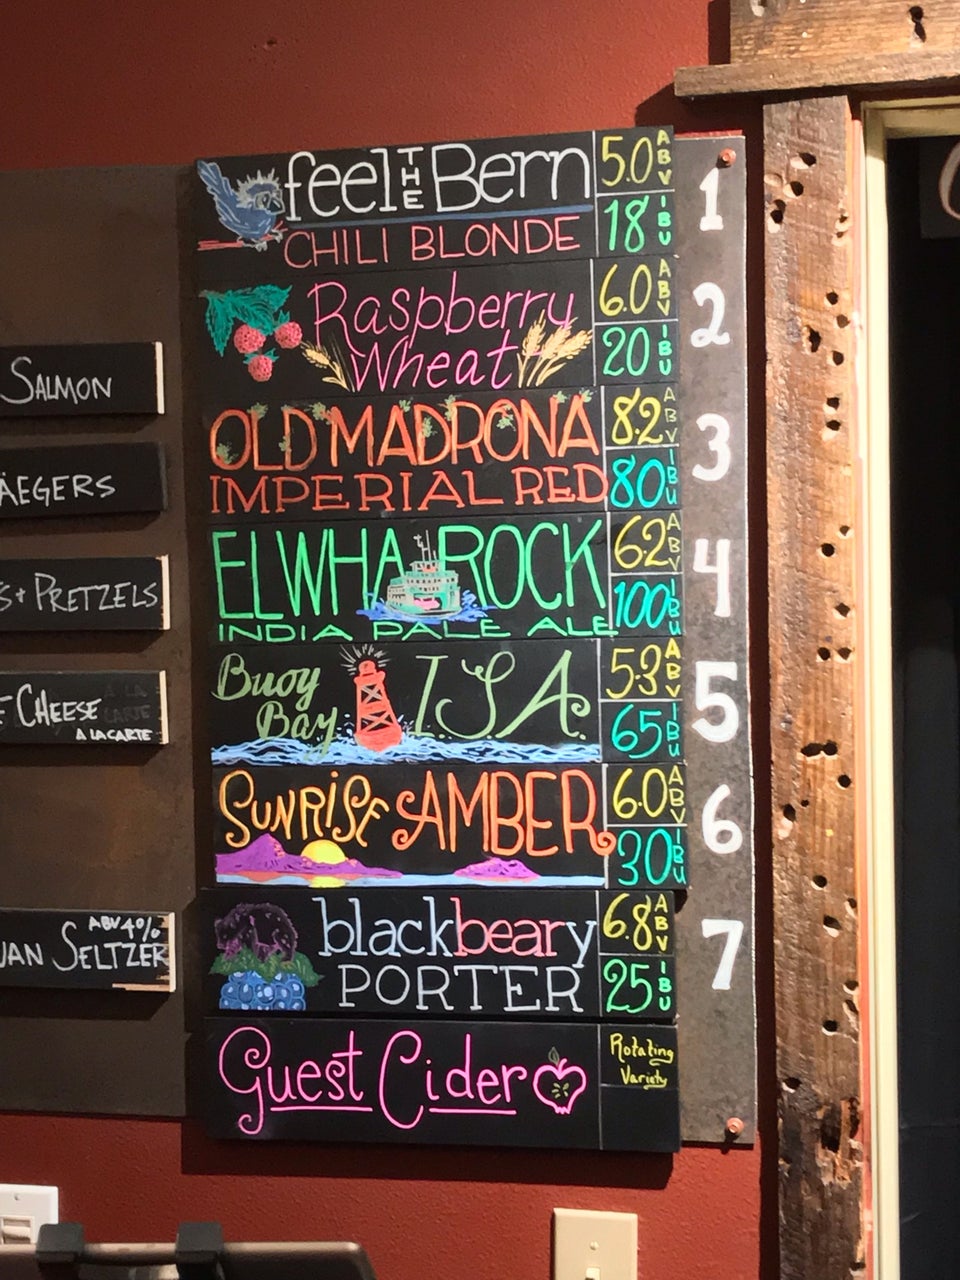 feel THE Bern
CHILI BLONDE
5.0 ABV
18 IBU
1
Raspberry
Wheat
6.0 ABV
20 IBU
2
OLD MADRONA
IMPERIAL RED
8.2 ABV
80 IBU
3
ELWHA ROCK
INDIA PALE ALE
6.2 ABV
100 IBU
4
Buoy
Bay
ISA
5.3 ABV
65 IBU
5
SUNRISE AMBER
6.0 ABV
30 IBU
6
blackbeary
PORTER
6.8 ABV
25 IBU
7
Guest Cider
Rotating
Variety
SALMON
AEGERS
S + PRETZELS
E CHEESE
A LA
CARTE
A LA CARTE
ABV 4%
SELTZER